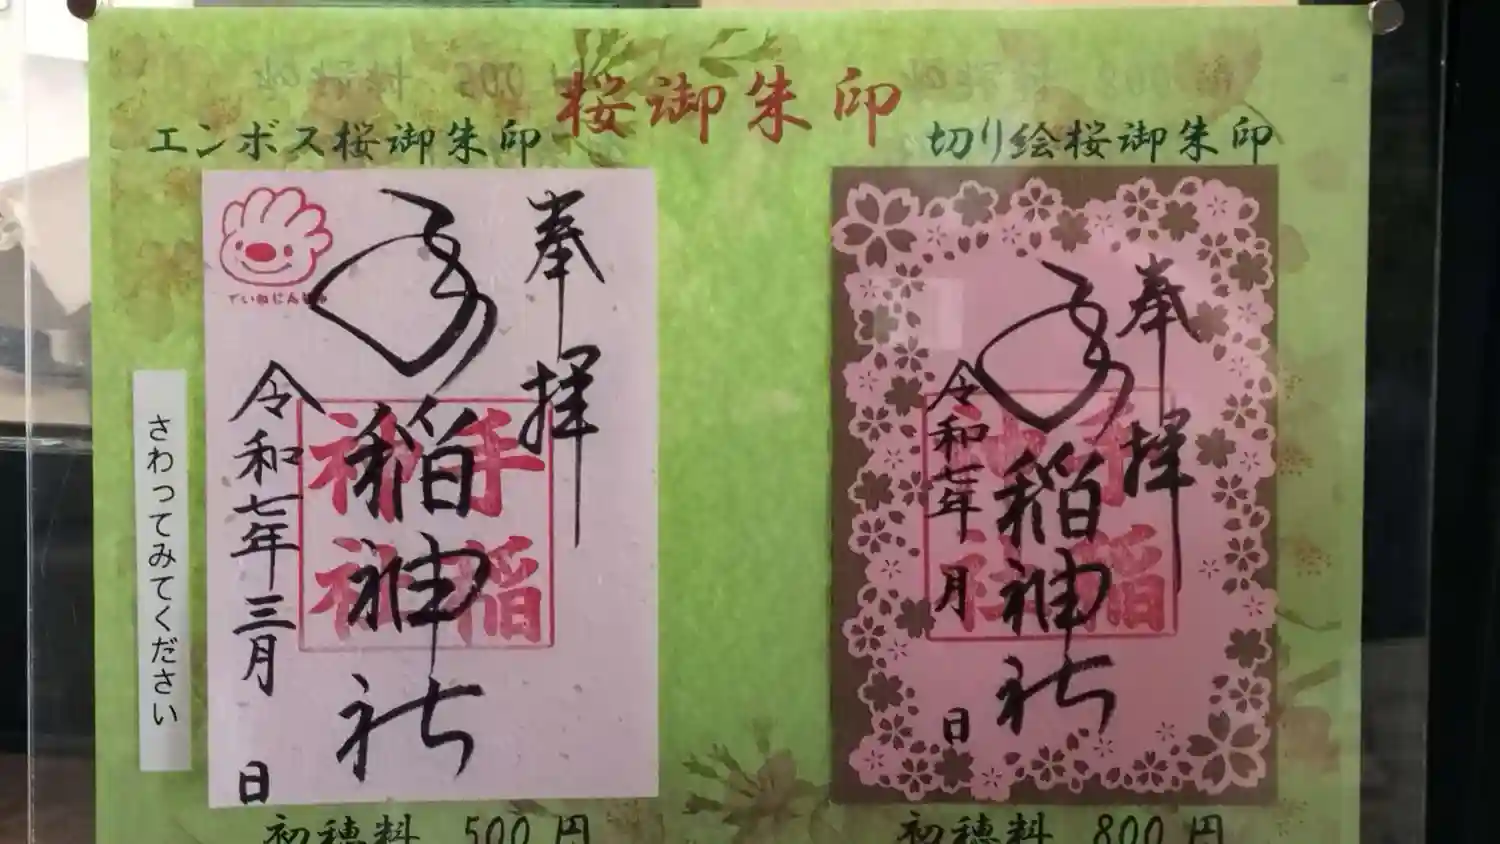 桜御朱印
エンボス桜御朱印
奉拝
手稲神社
手稲神社
令和七年三月 日
ていねじんじゃ
さわってみてください
初穂料 500円
切り絵桜御朱印
奉拝
手稲神社
手稲神社
令和七年 月 日
初穂料 800円